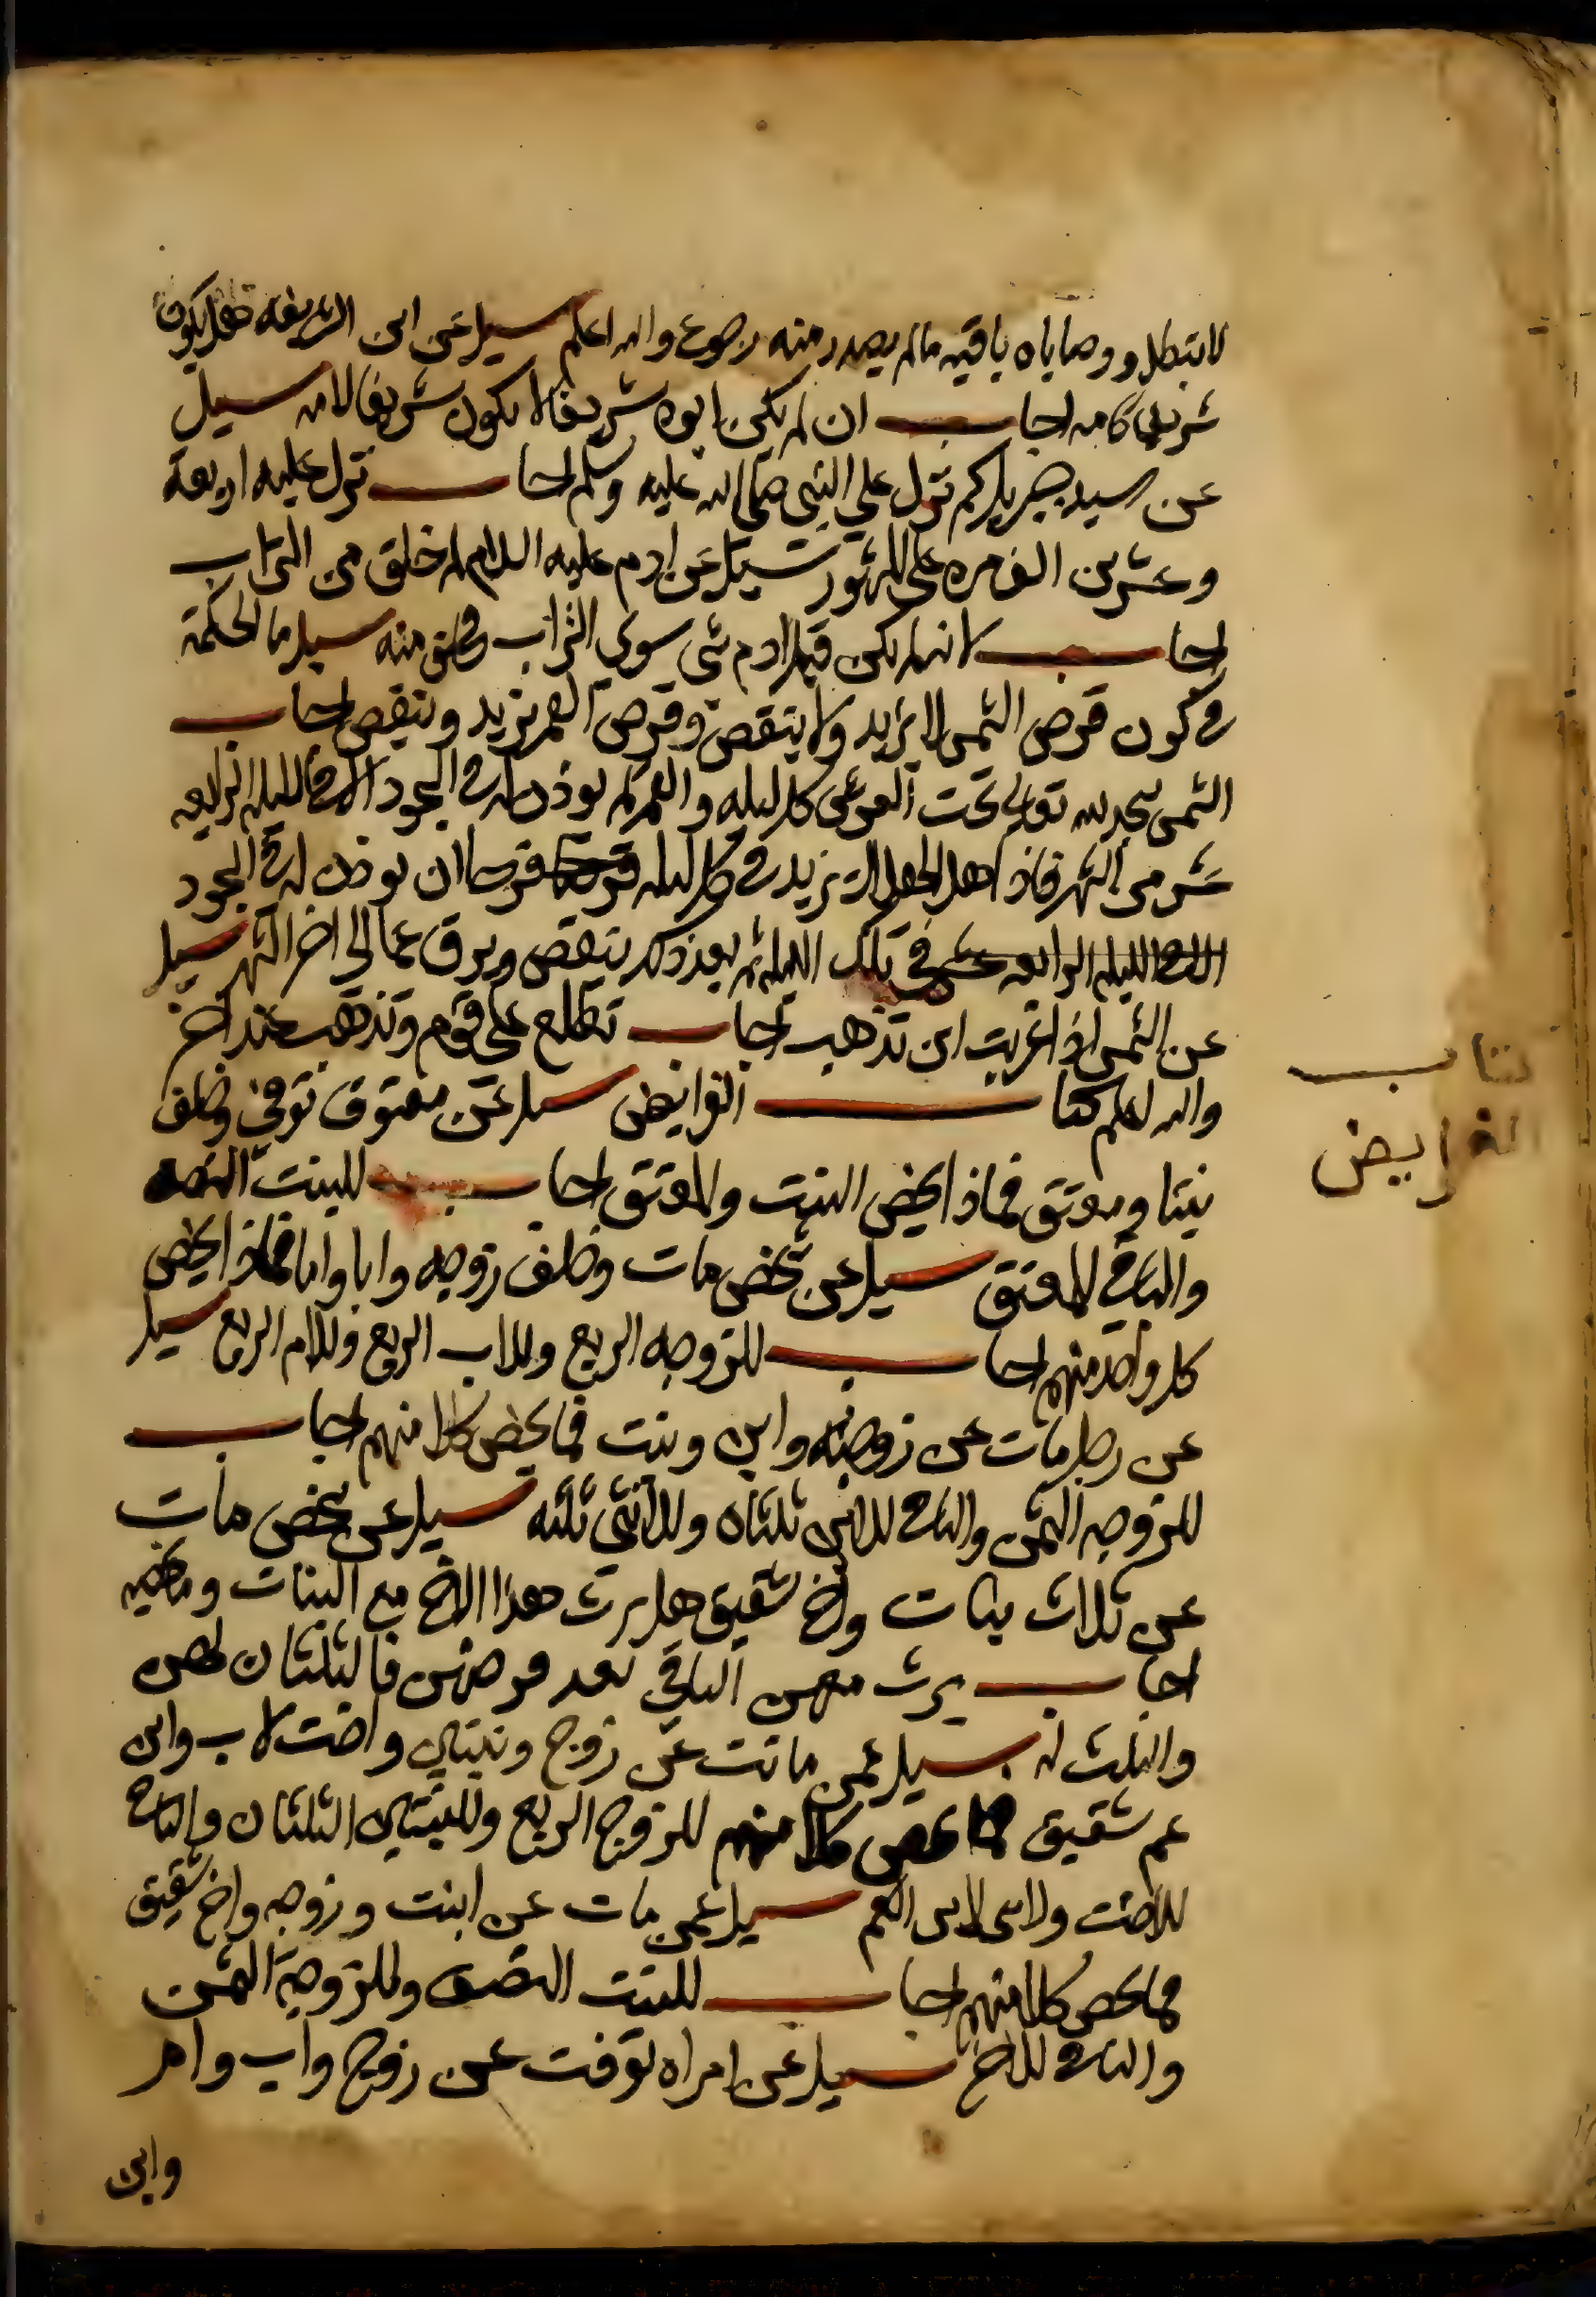 لا تبطل ووصاياه باقيه مالم يصدر منه رجوع والله اعلم سيل عن ابن الشريفه هل يكون
شريفا كامه اجاب ان لم يكن ابوه شريفا لا يكون شريفا لامه سيل
عن سيد جبريل كم نزل على النبي صلى الله عليه وسلم اجاب نزل عليه اربعة
وعشرين الف مره على المشهور سيل عن ادم عليه السلام لم خلق من التراب
اجاب لانه لم يكن قبل ادم شي سوي التراب فخلق منه سيل ما الحكمة
في كون قرص الشمس لا يزيد ولا ينقص وقرص القمر يزيد وينقص اجاب
الشمس تسجد لله تعالى تحت العرش كل ليله والقمر لم يوذن له في السجود الا في الليله الرابعه
عشر من الشهر فاذا اهل الهلال يزيد في كل ليله فرحا ان يوذن له في السجود
الليله الرابعه عشر في تلك الليله ثم بعد ذلك ينقص ويرق الى اخر الشهر سيل
عن الشمس اذا غربت اين تذهب اجاب تطلع على قوم وتذهب عند اخر
والله اعلم كتاب الفرايض سيل عن معتوق توفي وخلف
بنتا ومعتق فماذا يخص البنت والمعتق اجاب للبنت النصف
والباقي للمعتق سيل عن شخص مات وخلف زوجه وابا واما فماذا يخص
كل واحد منهم اجاب للزوجه الربع وللاب الربع وللام الربع سيل
عن رجل مات عن زوجته وابن وبنت فما يخص كلا منهم اجاب
للزوجه الثمن والباقي للابن ثلثاه وللانثى ثلثه سيل عن شخص مات
عن ثلاث بنات واخ شقيق هل يرث هذا الاخ مع البنات وما يخصه
اجاب يرث معهن الباقي بعد فرضهن فالثلثان لهن
والثلث له سيل عمن ماتت عن زوج وبنتين واخت لاب وابن
عم شقيق فما يخص كلا منهم للزوج الربع وللبنتين الثلثان والباقي
للاخت ولا شي لابن العم سيل عمن مات عن ابنت وزوجه واخ شقيق
فما يخص كلا منهم اجاب للبنت النصف وللزوجة الثمن
والباقي للاخ سيل عن امراه توفت عن زوج واب وام
وابن
كتاب
الفرايض